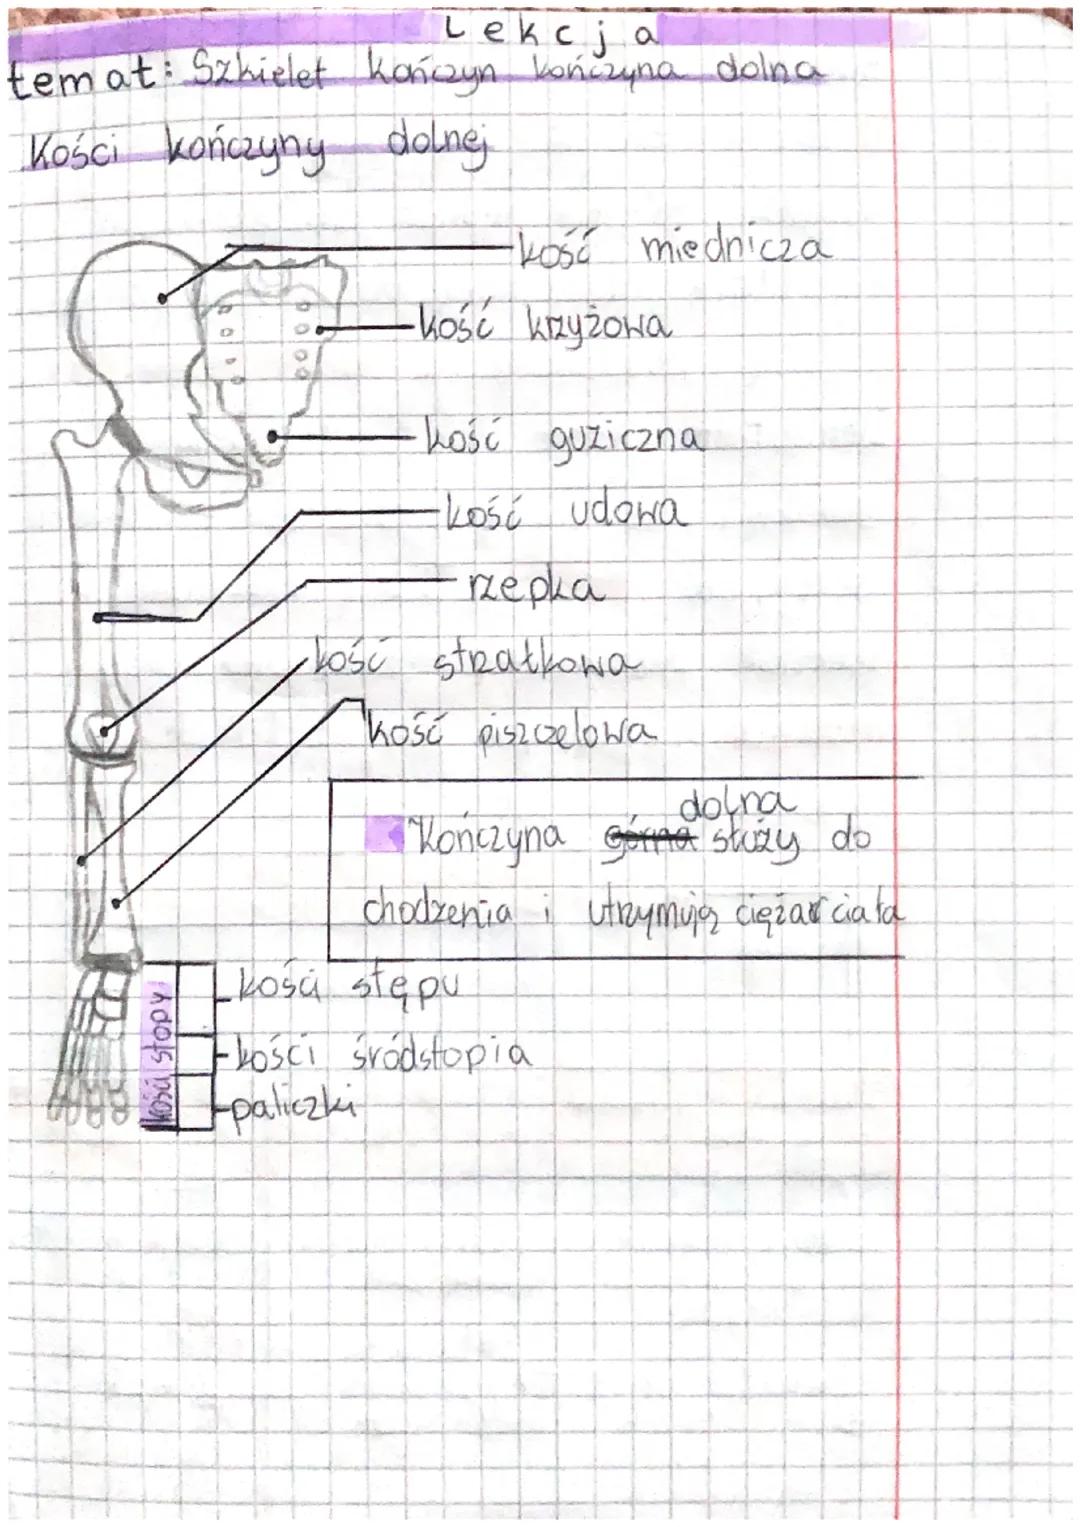 Lekcja
temat: Szkielet kończyn kończyna dolna
Kości kończyny dolnej
kość miednicza
kość krzyżowa
kość guziczna
kość udowa
rzepka
kość strzałkowa
kość piszczelowa
dolna
Kończyna górna służy do
chodzenia i utrzymują ciężar ciała
kości stopy
kości stępu
kości śródstopia
paliczki